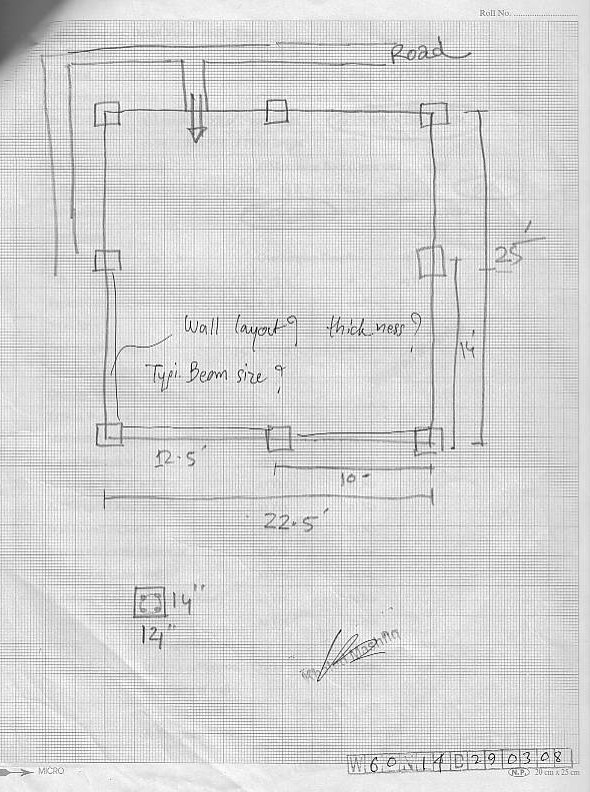 Roll No.
Road
25'
Wall layout? thickness?
14'
Typi. Beam size?
12.5'
10-
22.5'
14"
12"
W60N14D290308
MICRO
N.P. 20 cm x 25 cm